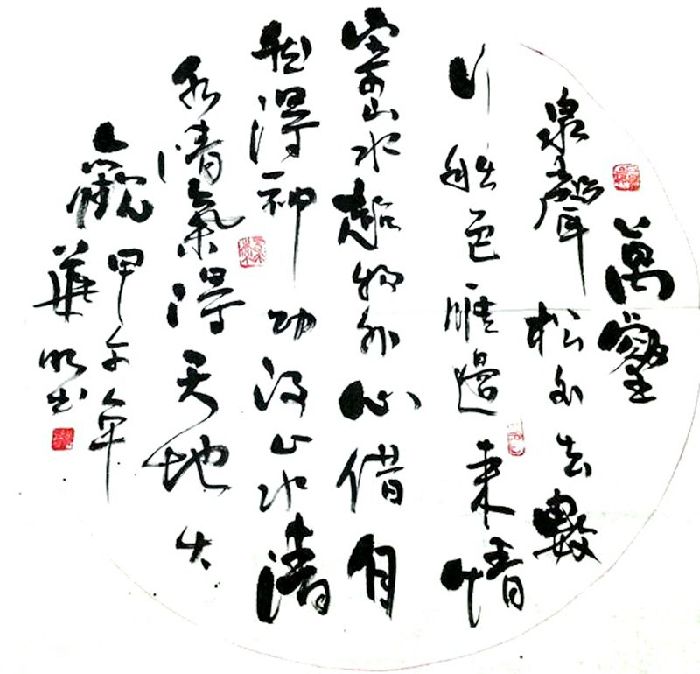 萬壑
泉聲松外去數
行秋色雁邊來情
寄山水超物外心借自
然得神功山水清
清氣得天地大
觀甲午年
華明書